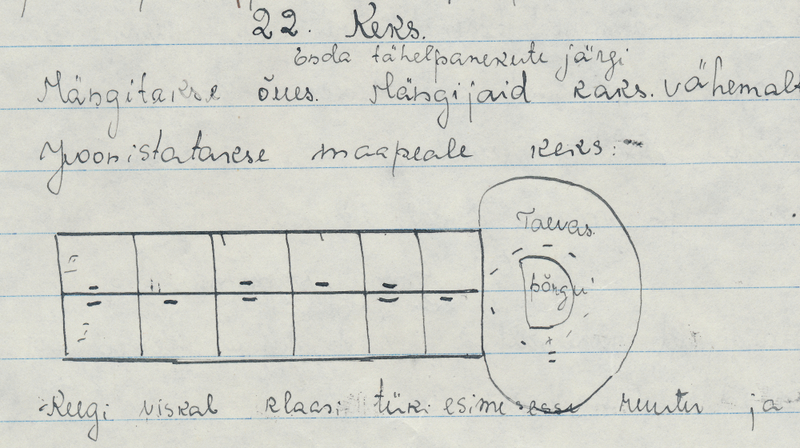 22. Keks.
Enda tähelpanekute järgi
Mängitakse õues. Mängijaid kaks. vähemalt
Joonistatakse maapeale keks:
Taevas.
põrgu
Keegi viskab klaasi tüki esimesesse ruutu ja